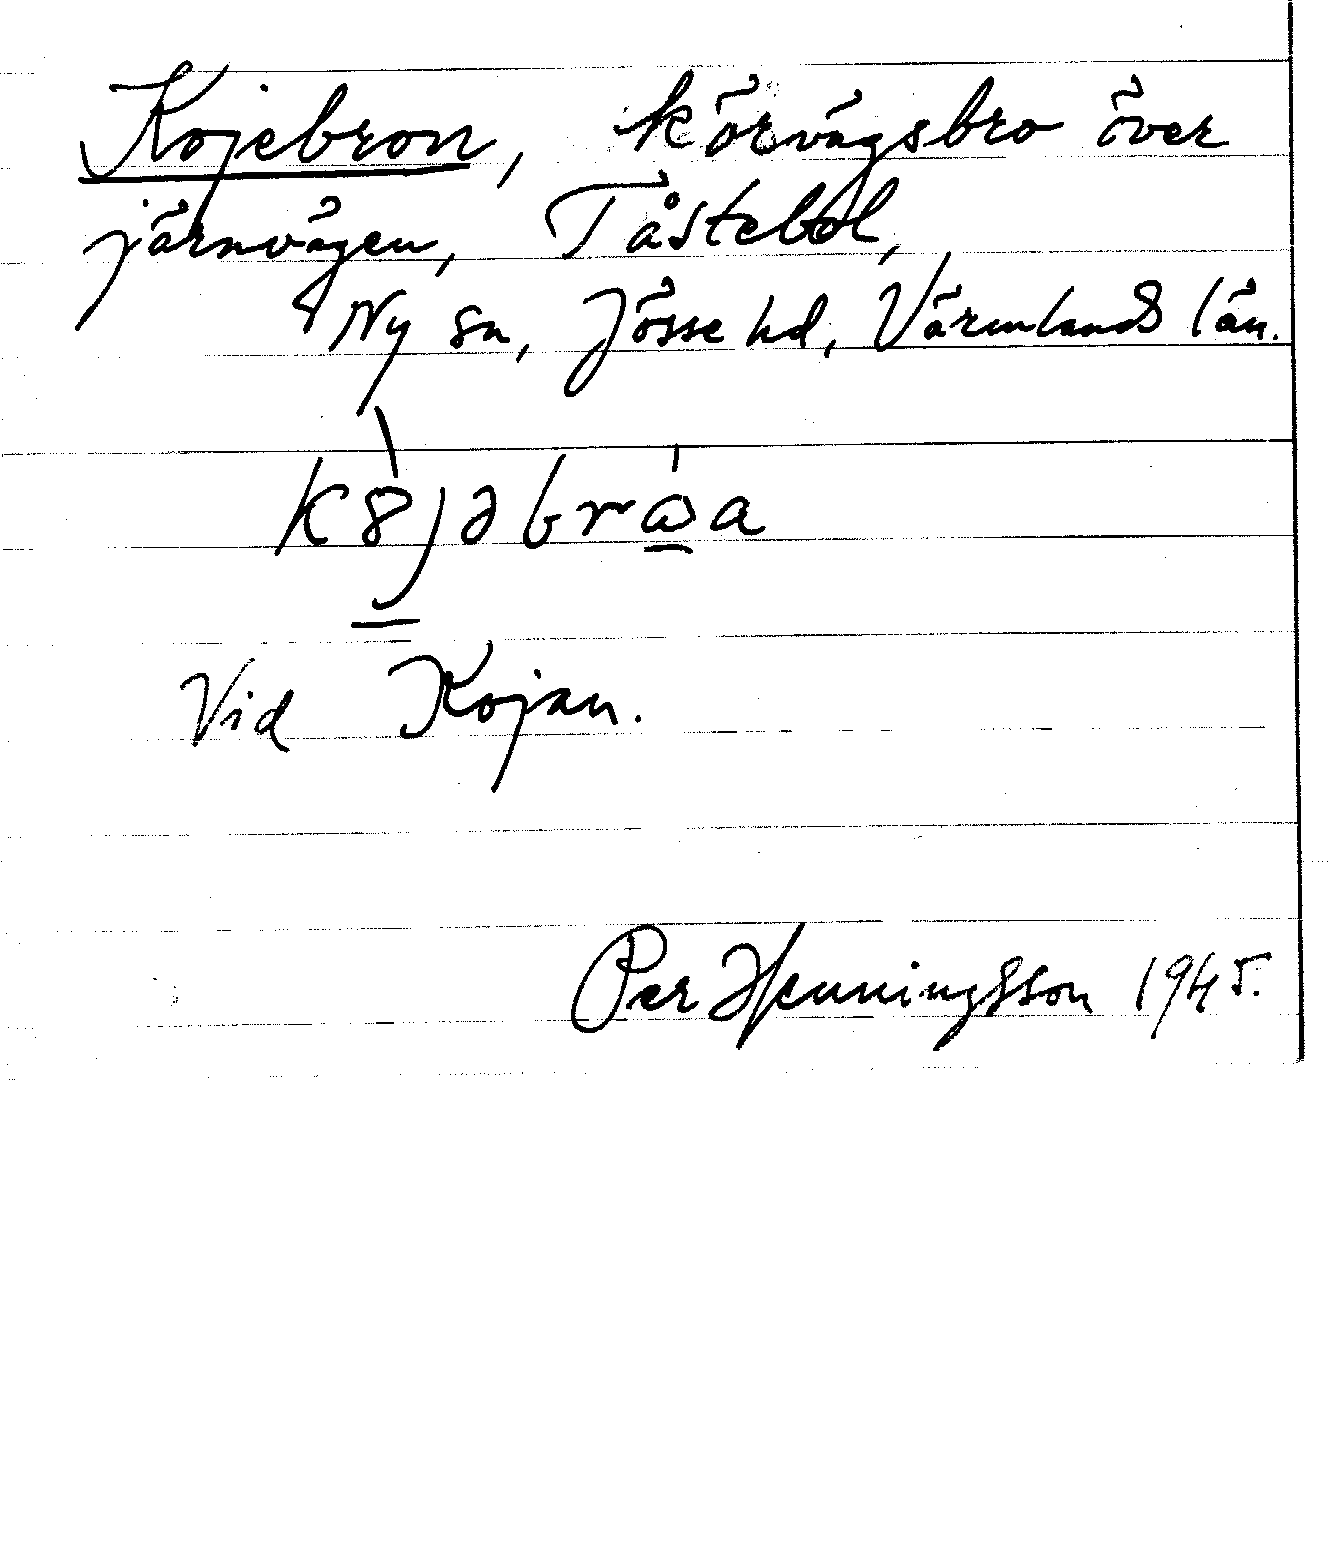 Kojebron, körvägsbro över
järnvägen, Tåstebol,
Ny sn, Jösse hd, Värmlands län.
k8jəbrɷa
Vid Kojan.
Per Henningsson 1945.